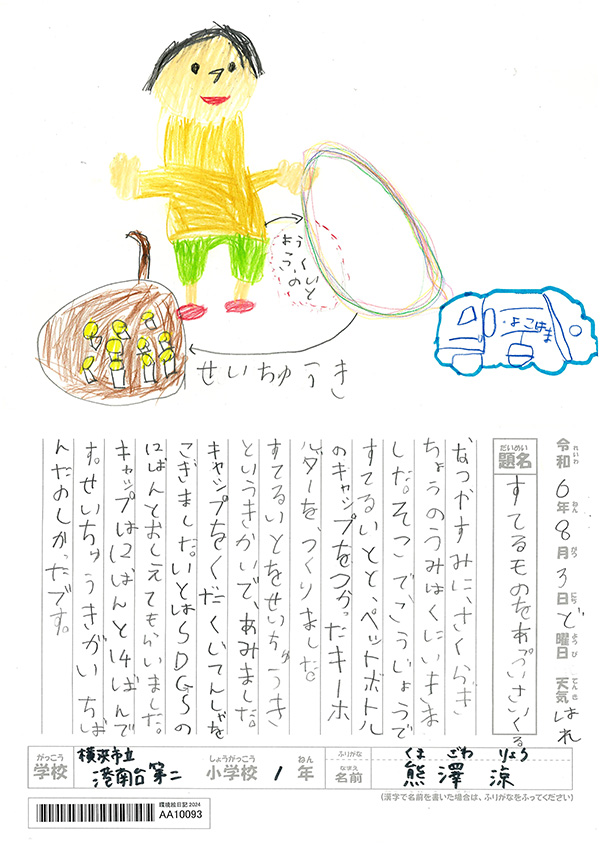 せいちゅうき
よこはま
れいわ ねん がつ にち ようび てんき
令和6年8月3日ど曜日 天気はれ
だいめい
題名 すてるものを
なつかすみに、さくらぎ
ちょうのうみはくにいきま
した。そこで、こうじょうで
すてるいとと、ペットボトル
のキャップをつかったキーホ
ルダーを、つくりました。
すてるいとをせいちゅうき
というきかいで、あみました。
キャップをくだくいてんしゃを
こぎました。いとはSDGSの
12ばんとおしえてもらいました。
キャップは12ばんと14ばんで
す。せいちゅうきがいちば
んたのしかったです。
がっこう しょうがっこう ねん ふりがな くま ざわ りょう
学校 横浜市立 港南台第二 小学校 1年 なまえ 名前 熊澤 涼
(漢字で名前を書いた場合は、ふりがなをふってください)
環境絵日記2024
AA10093